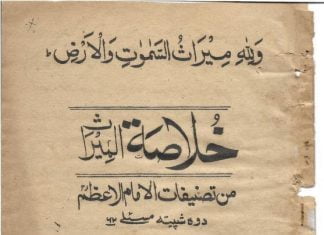 وَلِلّٰهِ مِيْرَاثُ السَّمٰوٰتِ وَالْاَرْضِ ؕ
خُلاصَة المِيْرَاث
من تصنيفات الامام الاعظمؒ